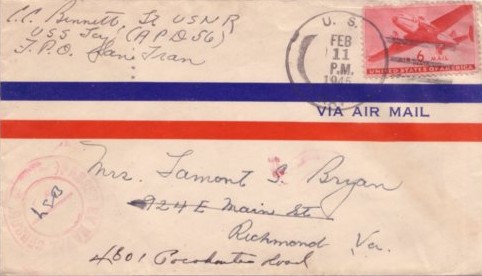 C.C. Bennett, Lt USNR
USS Joy (APD 56)
F.P.O. San Fran
U. S.
FEB
11
P.M.
1945
6¢ AIR MAIL
UNITED STATES OF AMERICA
VIA AIR MAIL
Mrs. Lamont S. Bryan
924 E Main St.
Richmond, Va.
4801 Pocahontas Road